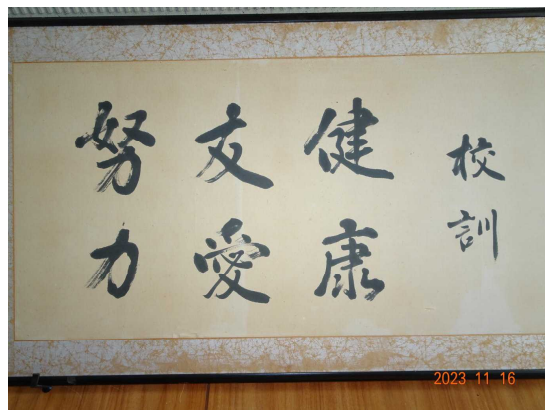 校訓
健康
友愛
努力
2023 11 16